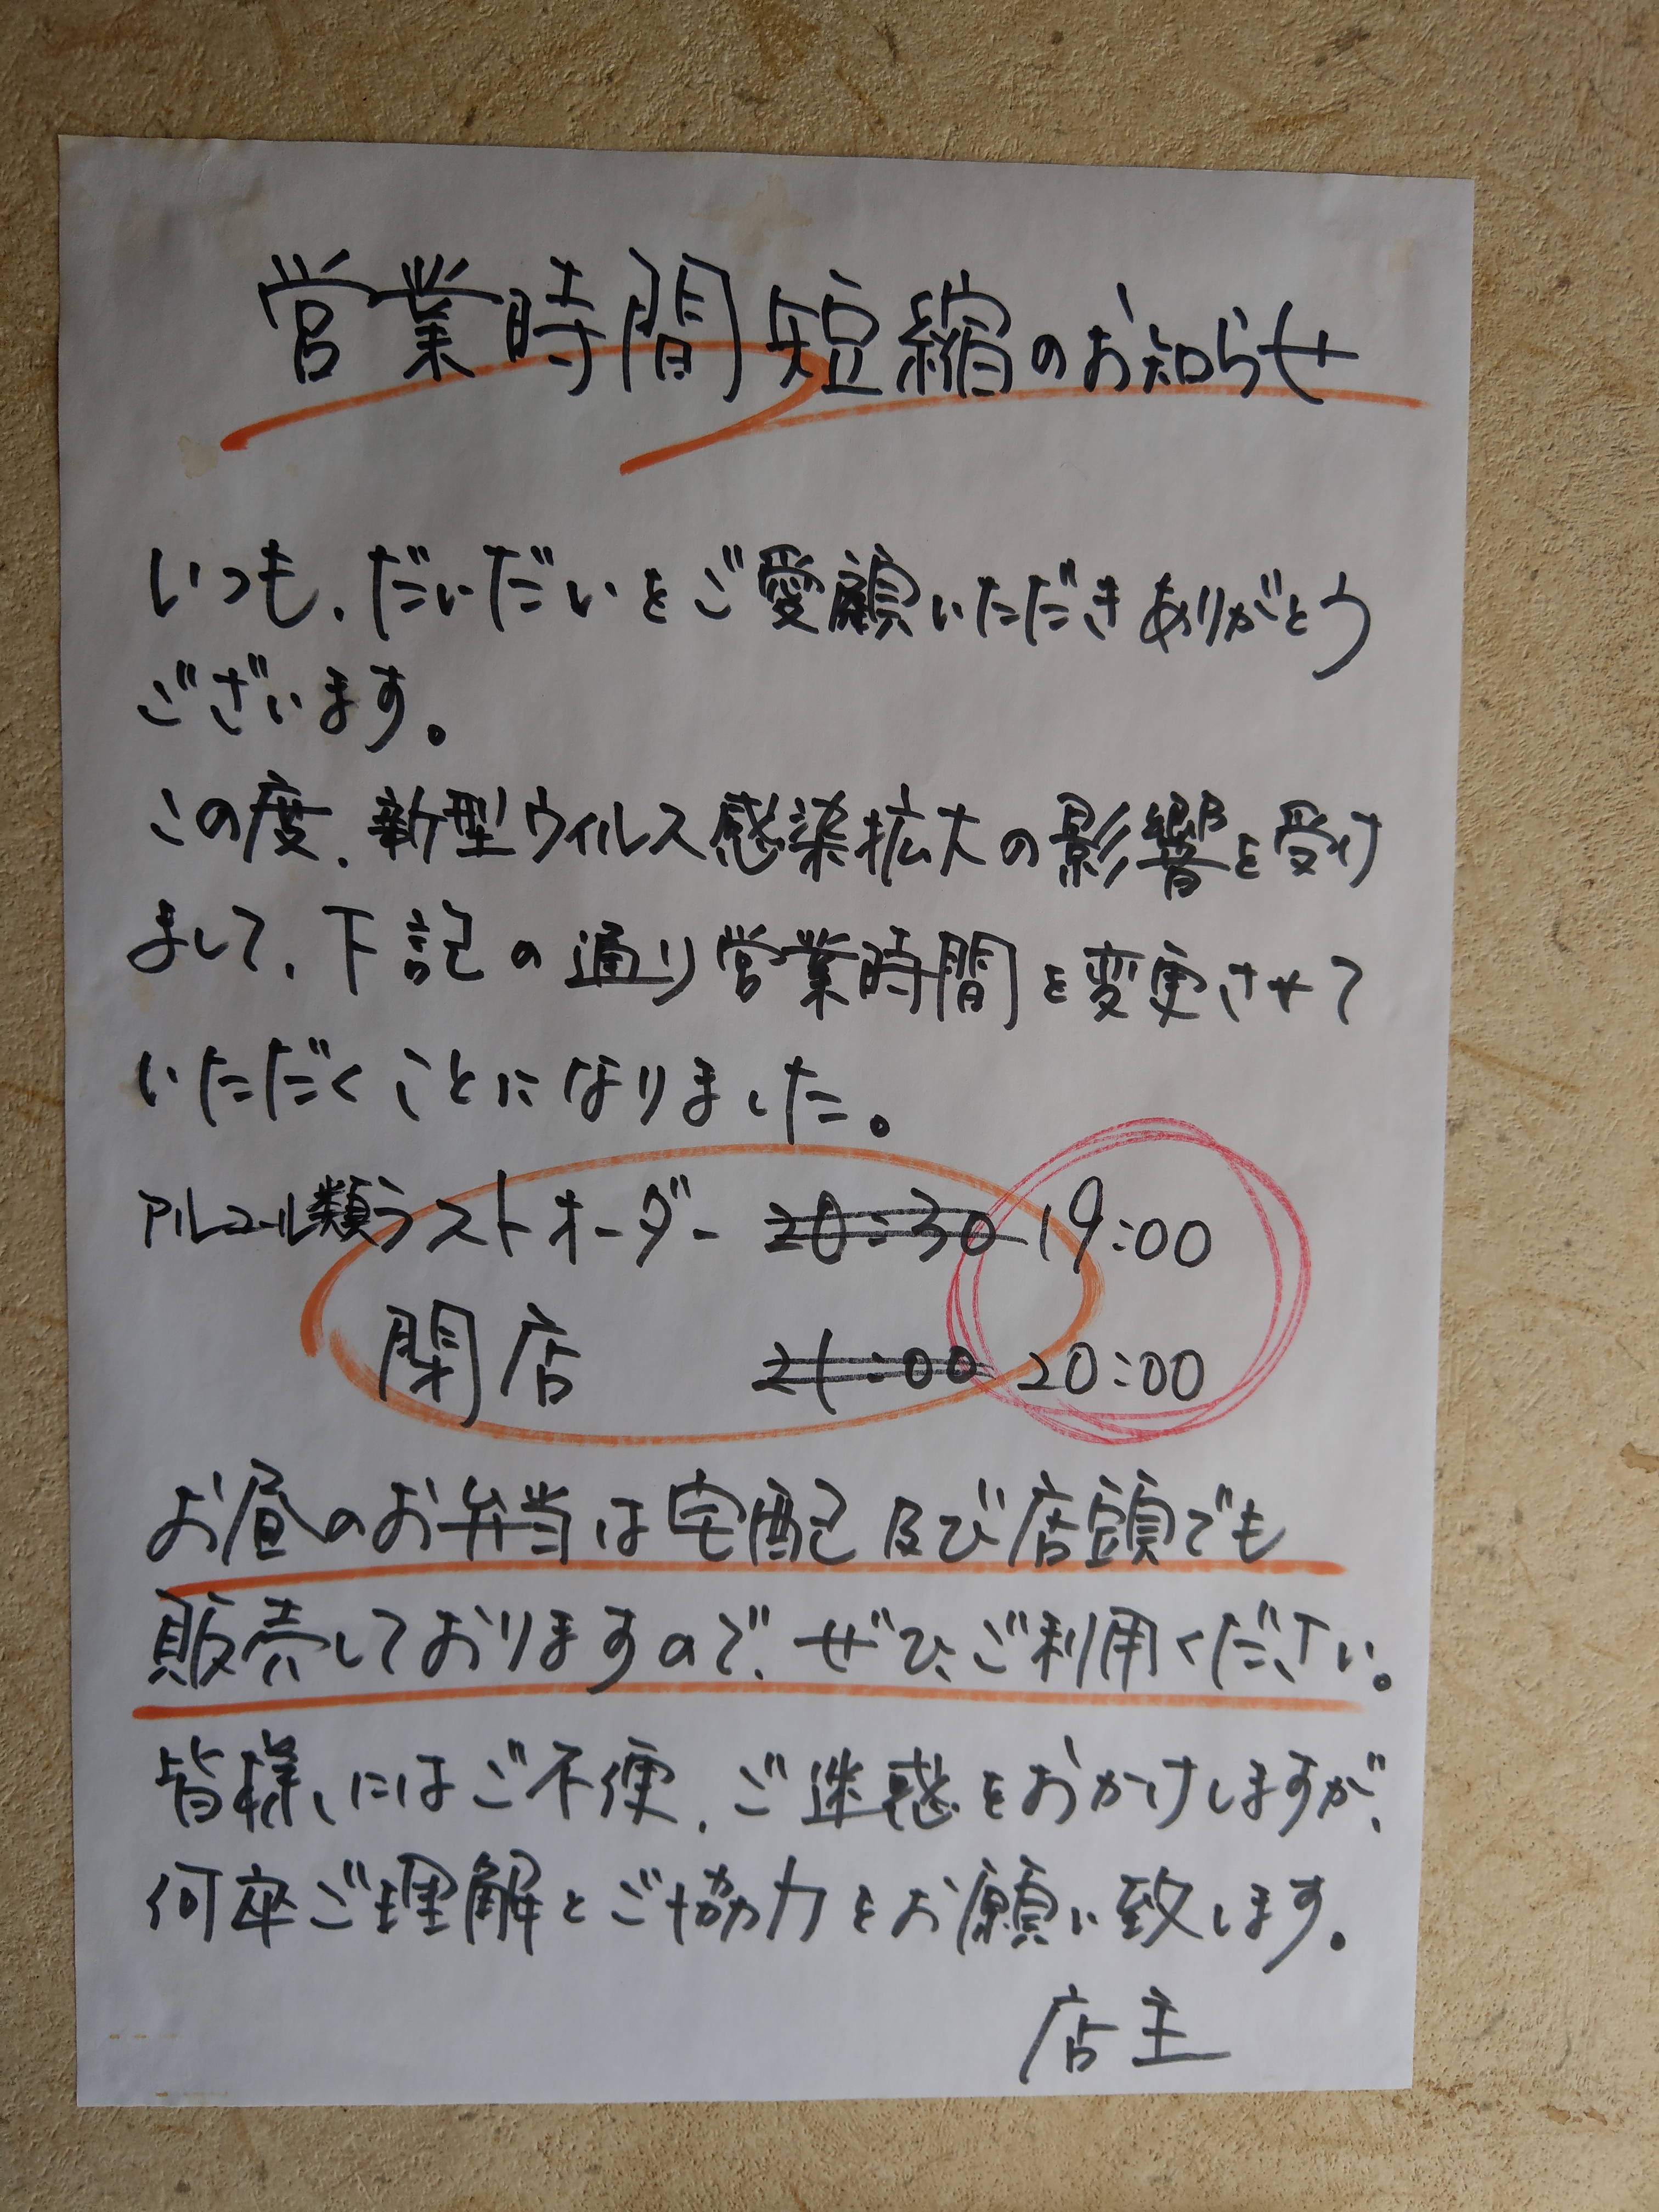 営業時間短縮のお知らせ
いつも、だいだいをご愛顧いただきありがとう
ございます。
この度、新型ウィルス感染拡大の影響を受け
まして、下記の通り営業時間を変更させて
いただくことになりました。
アルコール類ラストオーダー 20:30 19:00
閉店 21:00 20:00
お昼のお弁当は宅配及び店頭でも
販売しておりますので、ぜひ、ご利用ください。
皆様にはご不便、ご迷惑をおかけしますが、
何卒ご理解とご協力をお願い致します。
店主